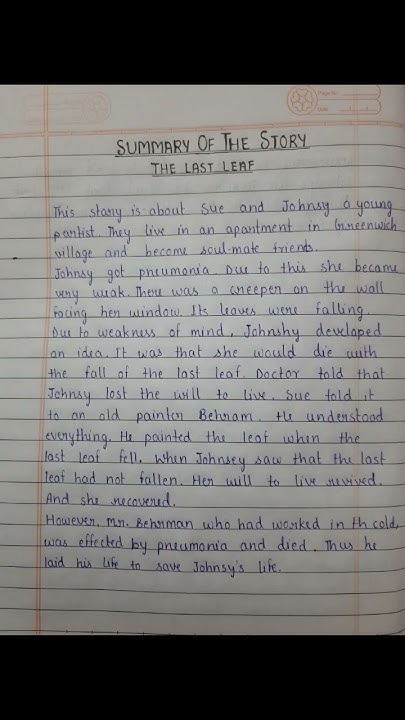 SUMMARY OF THE STORY
THE LAST LEAF
This story is about Sue and Johnsy a young
partist. They live in an apartment in Greenwich
village and become soul-mate friends.
Johnsy got pneumonia. Due to this she became
very weak. There was a creeper on the wall
facing her window. Its leaves were falling.
Due to weakness of mind, Johnshy developed
an idea. It was that she would die with
the fall of the last leaf. Doctor told that
Johnsy lost the will to live. Sue told it
to an old painter Behram. He understood
everything. He painted the leaf when the
last leaf fell. When Johnsey saw that the last
leaf had not fallen. Her will to live revived.
And she recovered.
However, Mr. Behrman who had worked in th cold,
was effected by pneumonia and died. Thus he
laid his life to save Johnsy's life.